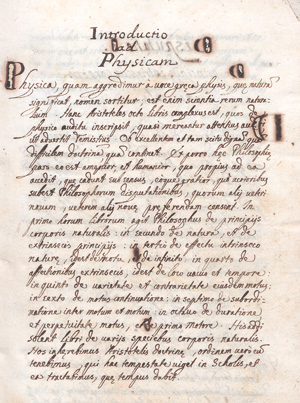 Introductio
ad
Physicam
Physica, quam aggredimur a voce græca physis, quæ naturam
significat, nomen sortitur, est enim scientia rerum natura-
lium. Hanc Aristoteles octo libris complexus est, quos de
physico auditu inscripsit, quasi mereantur attentius audiri
ut advertit Temistius ob excellentem et tam scitu dignam, quam
difficilem doctrinam quam continent. Et porro hæc Philosophiæ
pars eo est amplior, et humanior, quo propius ad ea
accedit, quæ cadunt sub sensus, eoque gratior, quod acrioribus
subest Philosophorum disputationibus, quorum alii veteri
novam, veterem alii novæ, præferendam censent. In
primo horum librorum agit Philosophus de principijs
corporis naturalis: in secundo de natura, et de
extrinsecis principijs: in tertio de affectu intrinseco
naturæ, idest de motu, et de infinito, in quarto de
affectionibus extrinsecis, idest de loco vacuo et tempore:
in quinto de varietate et contrarietate eiusdem motus:
in sexto de motus continuatione: in septimo de subordi-
natione inter motum et motum: in octavo de duratione
et perpetuitate motus, et de primo motore. Hos adij
solent libri de varijs speciebus corporis naturalis.
Nos inhærebimus Aristotelis doctrinæ, ordinem vero eum
tenebimus, qui hac tempestate viget in Scholis, et
ea tractabimus, quæ tempus dabit.